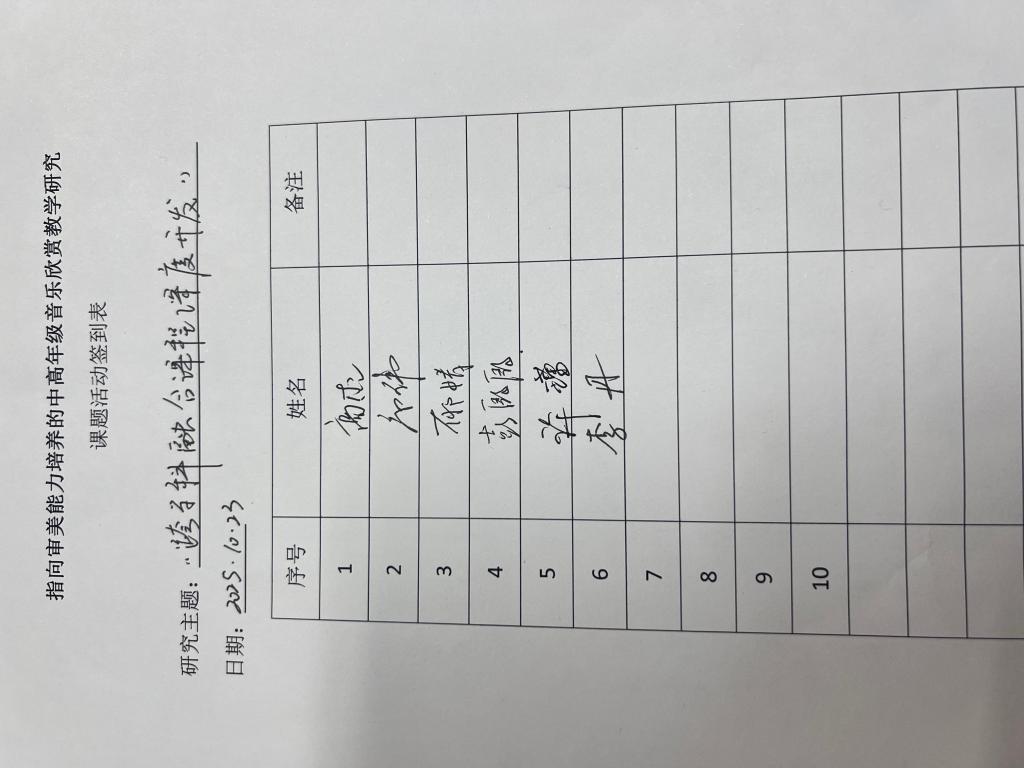 指向审美能力培养的中高年级音乐欣赏教学研究
课题活动签到表
研究主题：“跨学科融合课程深度开发”
日期：2025.10.23
序号 姓名 备注
1 高杰
2
3
4
5 许
6 李丹
7
8
9
10